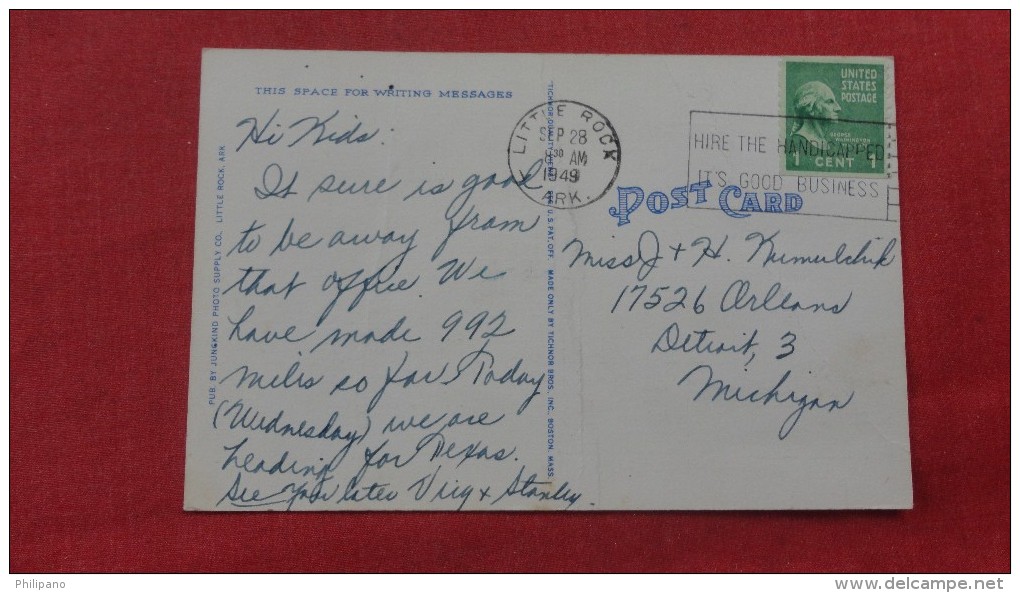 THIS SPACE FOR WRITING MESSAGES
Hi Kids:
It sure is good
to be away from
that office. We
have made 992
miles so far Today
(Wednesday) we are
heading for Texas.
See you later Virg & Stanley
PUB. BY JUNGKIND PHOTO SUPPLY CO., LITTLE ROCK, ARK.
U.S. PAT. OFF. MADE ONLY BY TICHNOR BROS., INC., BOSTON, MASS.
LITTLE ROCK
SEP 28
AM
1949
ARK.
HIRE THE HANDICAPPED
IT'S GOOD BUSINESS
UNITED
STATES
POSTAGE
GEORGE
WASHINGTON
1 CENT 1
POST CARD
Miss J + H. Kumulchik
17526 Orleans
Detroit, 3
Michigan
Philipano
www.delcampe.net